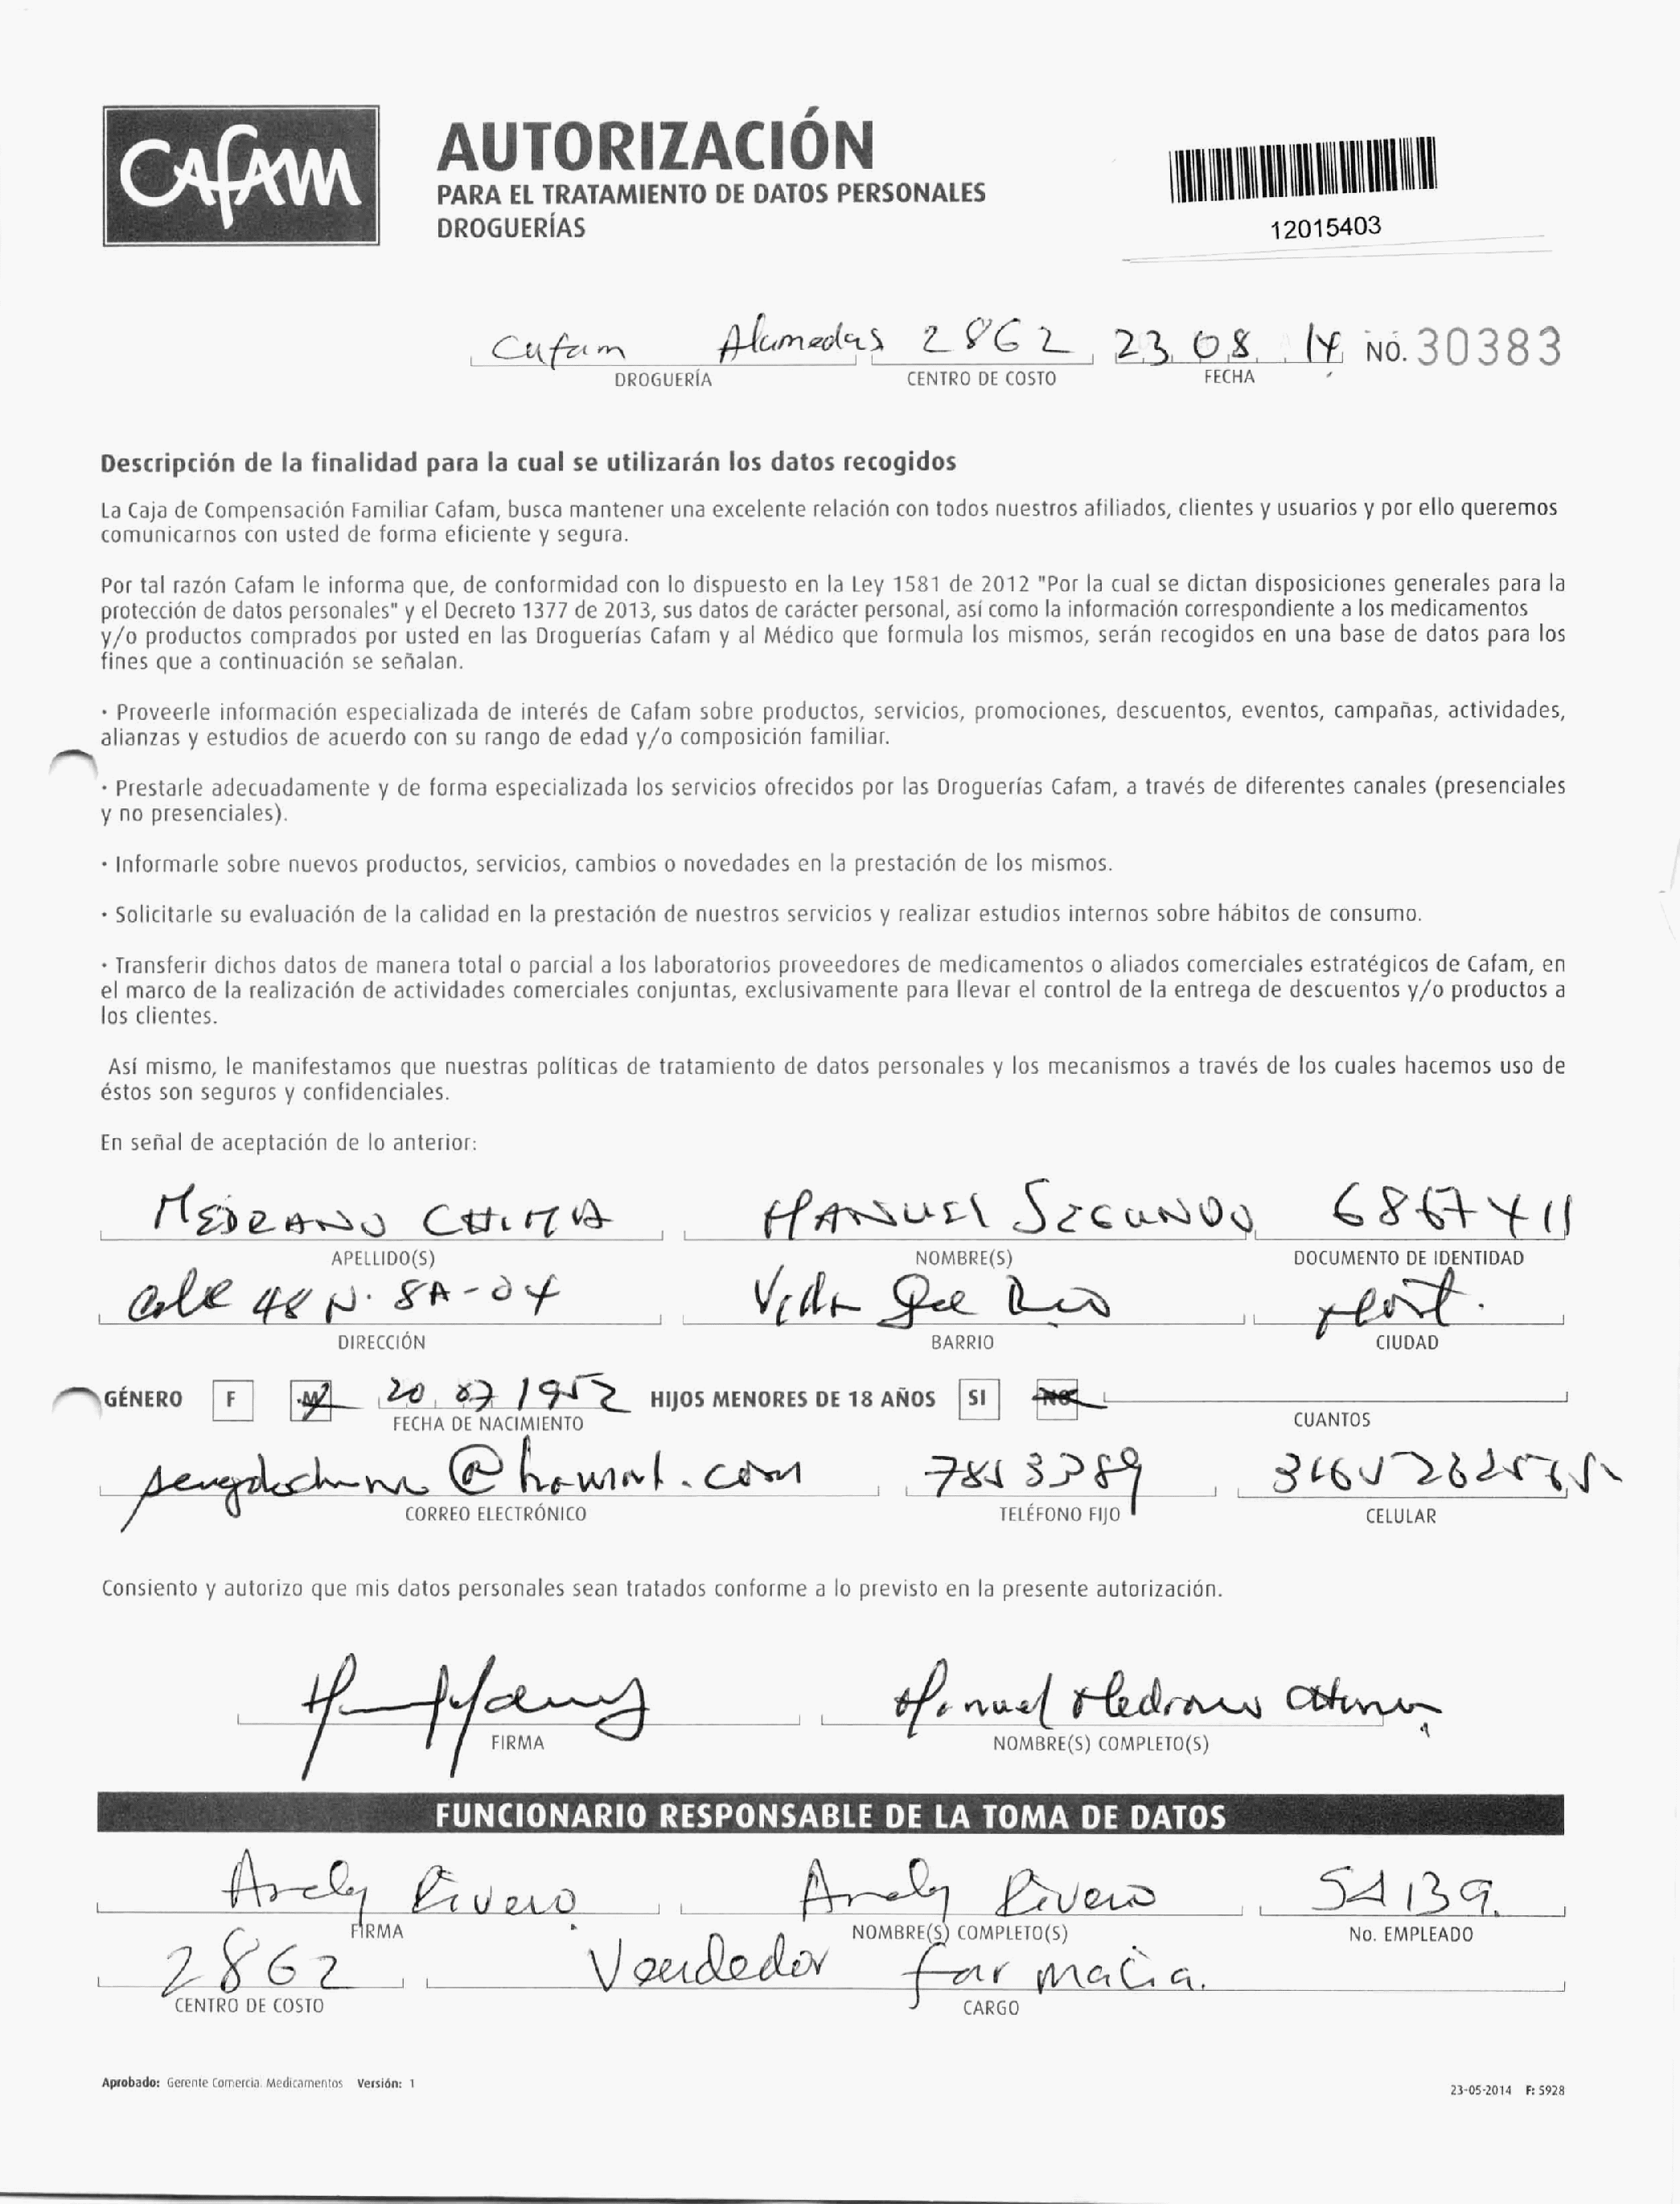 CAFAM
AUTORIZACIÓN
PARA EL TRATAMIENTO DE DATOS PERSONALES
DROGUERÍAS
12015403
Cafam Alamedas 2862 23 08 14 NO. 30383
DROGUERÍA CENTRO DE COSTO FECHA
Descripción de la finalidad para la cual se utilizarán los datos recogidos
La Caja de Compensación Familiar Cafam, busca mantener una excelente relación con todos nuestros afiliados, clientes y usuarios y por ello queremos
comunicarnos con usted de forma eficiente y segura.
Por tal razón Cafam le informa que, de conformidad con lo dispuesto en la Ley 1581 de 2012 "Por la cual se dictan disposiciones generales para la
protección de datos personales" y el Decreto 1377 de 2013, sus datos de carácter personal, así como la información correspondiente a los medicamentos
y/o productos comprados por usted en las Droguerías Cafam y al Médico que formula los mismos, serán recogidos en una base de datos para los
fines que a continuación se señalan.
· Proveerle información especializada de interés de Cafam sobre productos, servicios, promociones, descuentos, eventos, campañas, actividades,
alianzas y estudios de acuerdo con su rango de edad y/o composición familiar.
· Prestarle adecuadamente y de forma especializada los servicios ofrecidos por las Droguerías Cafam, a través de diferentes canales (presenciales
y no presenciales).
· Informarle sobre nuevos productos, servicios, cambios o novedades en la prestación de los mismos.
· Solicitarle su evaluación de la calidad en la prestación de nuestros servicios y realizar estudios internos sobre hábitos de consumo.
· Transferir dichos datos de manera total o parcial a los laboratorios proveedores de medicamentos o aliados comerciales estratégicos de Cafam, en
el marco de la realización de actividades comerciales conjuntas, exclusivamente para llevar el control de la entrega de descuentos y/o productos a
los clientes.
Así mismo, le manifestamos que nuestras políticas de tratamiento de datos personales y los mecanismos a través de los cuales hacemos uso de
éstos son seguros y confidenciales.
En señal de aceptación de lo anterior:
MEDRANO CHIMA MANUEL SEGUNDO 6867411
APELLIDO(S) NOMBRE(S) DOCUMENTO DE IDENTIDAD
Calle 48 N. 8A-04
DIRECCIÓN BARRIO CIUDAD
GÉNERO F M 20 07 1952 HIJOS MENORES DE 18 AÑOS SI NO
FECHA DE NACIMIENTO CUANTOS
7853389
CORREO ELECTRÓNICO TELÉFONO FIJO CELULAR
Consiento y autorizo que mis datos personales sean tratados conforme a lo previsto en la presente autorización.
Manuel Medrano Chima
FIRMA NOMBRE(S) COMPLETO(S)
FUNCIONARIO RESPONSABLE DE LA TOMA DE DATOS
Arely Rivero Arely Rivero 51139.
FIRMA NOMBRE(S) COMPLETO(S) No. EMPLEADO
2862 Vendedor farmacia.
CENTRO DE COSTO CARGO
Aprobado: Gerente Comercial Medicamentos Versión: 1
23-05-2014 F: 5928